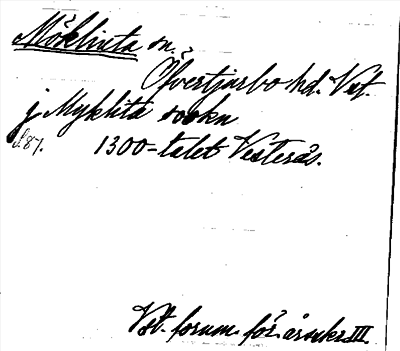 Möklinta sn.
Öfvertjurbo hd. Vst.
j Myklita sookn
S. 87. 1300-talet Vesterås.
Vst. fornm. för. årsskr. III